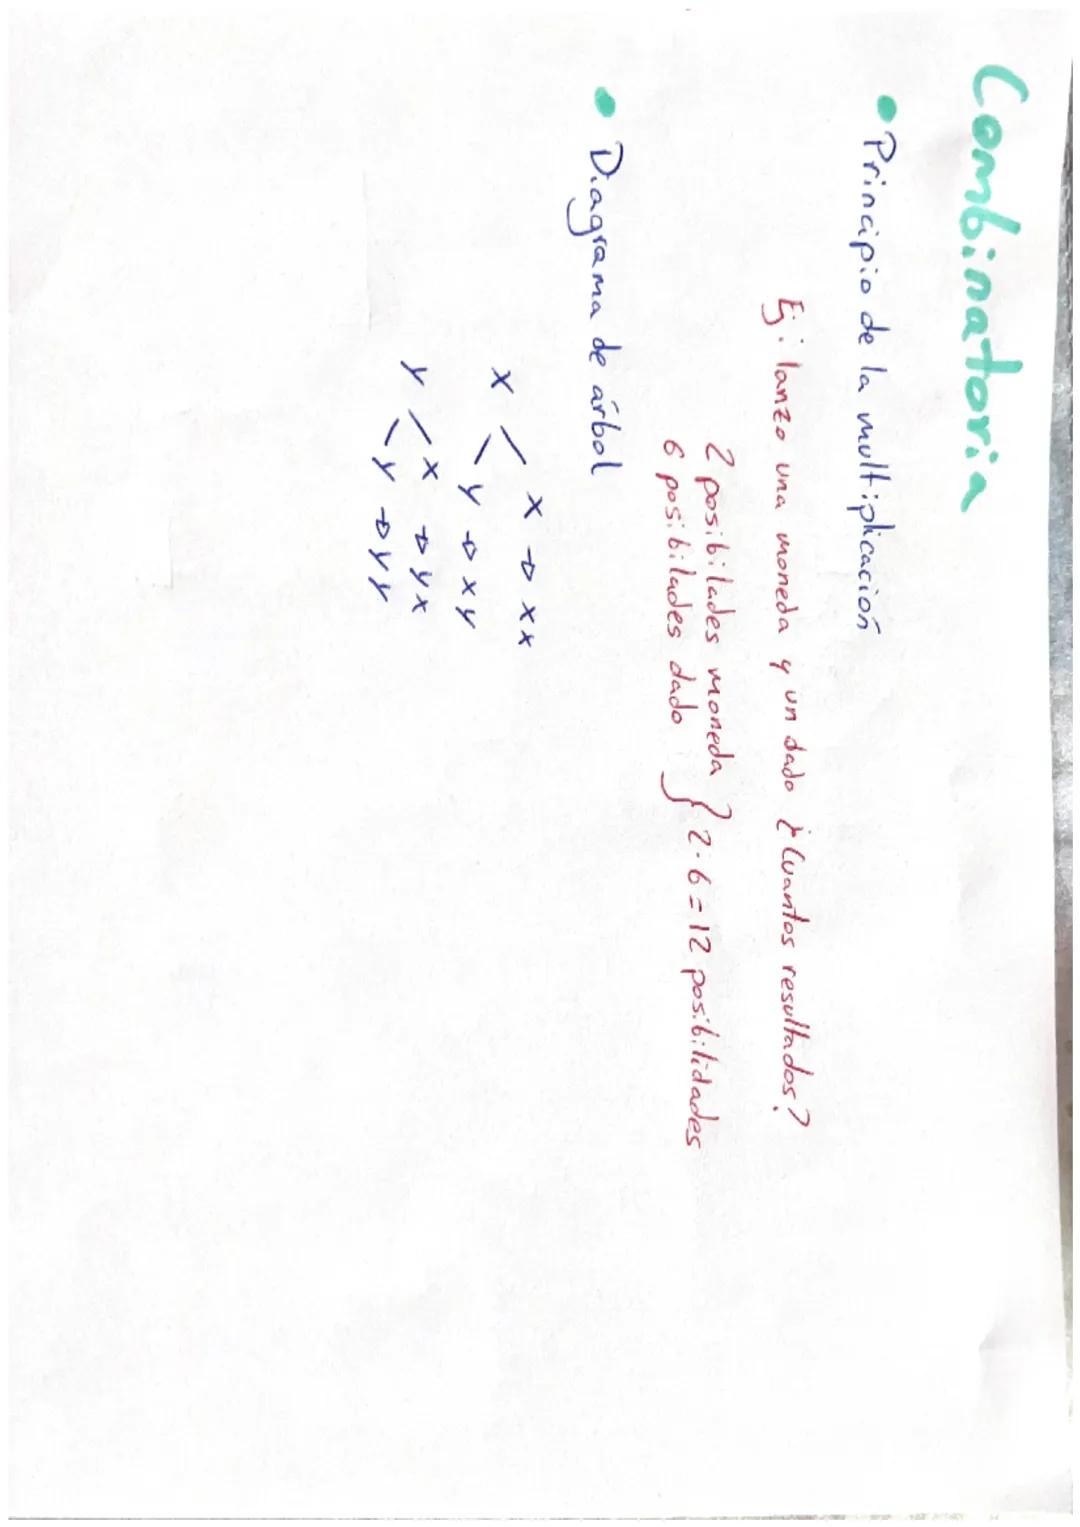 Combinatoria
• Principio de la multiplicación
Ej: lanzo una moneda y un dado ¿Cuantos resultados?
2 posibilades moneda } 2·6=12 posibilidades
6 posibilades dado
• Diagrama de árbol
x < x → xx
y → xy
y < x → yx
y → yy